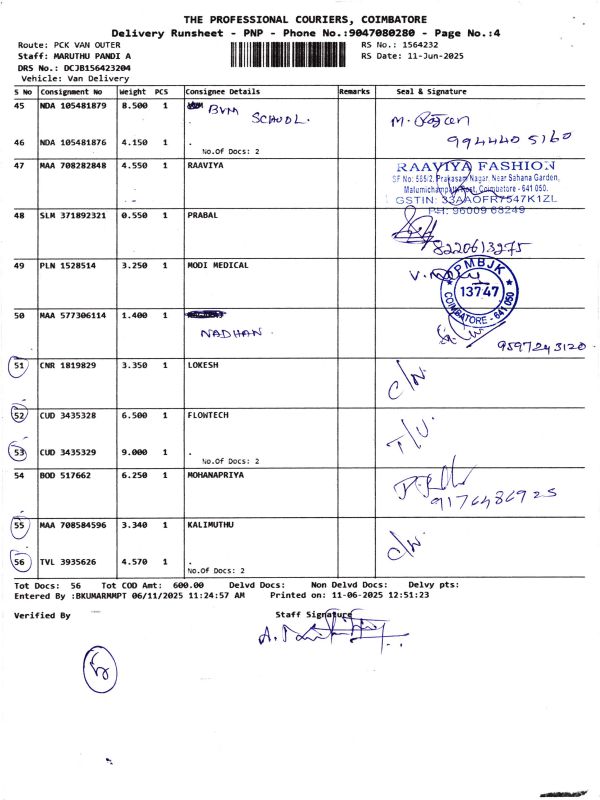 THE PROFESSIONAL COURIERS, COIMBATORE
Delivery Runsheet - PNP - Phone No.:9047080280 - Page No.:4
Route: PCK VAN OUTER RS No.: 1564232
Staff: MARUTHU PANDI A RS Date: 11-Jun-2025
DRS No.: DCJB156423204
Vehicle: Van Delivery
S No Consignment No Weight PCS Consignee Details Remarks Seal & Signature
45 NDA 105481879 8.500 1 BVM SCHOOL.
46 NDA 105481876 4.150 1 . 994440 5160
No.Of Docs: 2
47 MAA 708282848 4.550 1 RAAVIYA RAAVIYA FASHION
SF No: 565/2, Prakasam Nagar, Near Sahana Garden,
Coimbatore - 641 050.
GSTIN: 33AAOFR7547K1ZL
PH: 96009 68249
48 SLM 371892321 0.550 1 PRABAL
8220613275
49 PLN 1528514 3.250 1 MODI MEDICAL
PMBJK
13747
COIMBATORE - 641 050
50 MAA 577306114 1.400 1 NADHAN.
9597243120
51 CNR 1819829 3.350 1 LOKESH C/N.
52 CUD 3435328 6.500 1 FLOWTECH T/U.
53 CUD 3435329 9.000 1 .
No.Of Docs: 2
54 BOD 517662 6.250 1 MOHANAPRIYA
9176486925
55 MAA 708584596 3.340 1 KALIMUTHU C/N.
56 TVL 3935626 4.570 1 .
No.Of Docs: 2
Tot Docs: 56 Tot COD Amt: 600.00 Delvd Docs: Non Delvd Docs: Delvy pts:
Entered By :BKUMARMMPT 06/11/2025 11:24:57 AM Printed on: 11-06-2025 12:51:23
Verified By Staff Signature